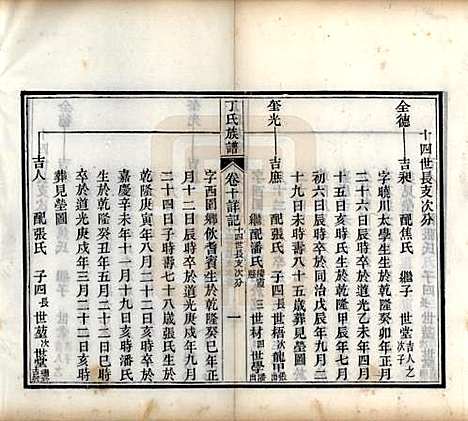 十四世長支次分
全德——吉昶 配焦氏 繼子 世堂吉人之次子
字聰川太學生生於乾隆癸卯年正月
二十六日辰時卒於道光乙未年四月
十五日亥時焦氏生於乾隆甲辰年七月
初六日辰時卒於同治戊辰年九月二
十九日未時壽八十五歲葬見塋圖
奎光——吉庶 繼配潘氏 子四 長世梧 次龍甲 三世材 四世學
丁氏族譜 卷十詳記 十四世長支次分 一
字西園鄉飲耆賓生於乾隆癸巳年正
月十二日辰時卒於道光庚戌年九月
二十四日子時壽七十八歲張氏生於
乾隆庚寅年八月二十二日辰時卒於
嘉慶辛未年十一月十九日亥時潘氏
生於乾隆辛丑年五月初三日亥時
卒於道光庚戌年三月二十二日亥時
葬見塋圖
吉人 配張氏 子四 長世堇 次世學